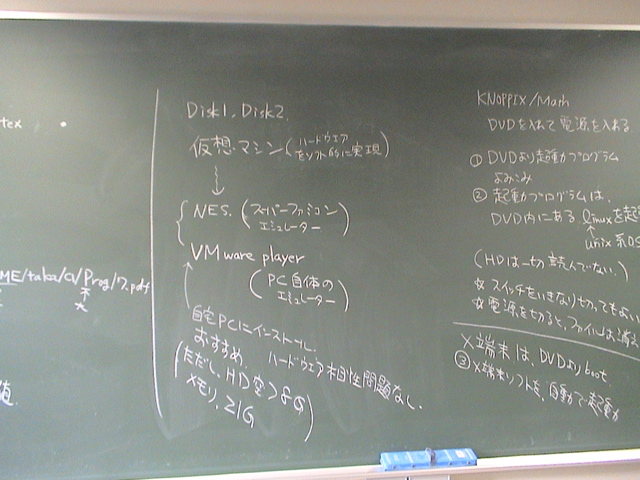 tex
ME/taka/a/Prog/7.pdf
値
Disk1, Disk2.
仮想マシン(ハードウェア
をソフト的に実現)
↓
NES. (スーパーファミコン
エミュレーター)
VMware player
(PC自体の
エミュレーター)
自宅PCにインストールし、
おすすめ. ハードウェア相性問題なし.
(ただし、HD空>8G
メモリ. ≧1G)
KNOPPIX/Math
DVDを入れて電源を入れる
① DVDより起動プログラム
よみこみ
② 起動プログラムは、
DVD内にある linuxを起
unix系OS
(HDは一切読んでいない.)
☆ スイッチをいきなり切ってもよい
☆ 電源を切ると、ファイルは消え
X端末は、DVDよりboot.
③ X端末ソフトを、自動で起動